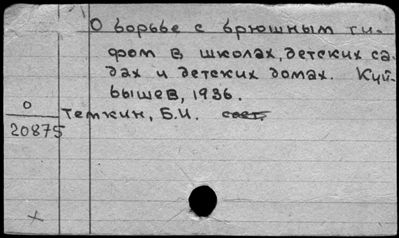 О борьбе с брюшным ти-
фом в школах, детских са-
дах и детских домах. Куй-
бышев, 1936.
О
20875
Темкин, Б.И. сост.